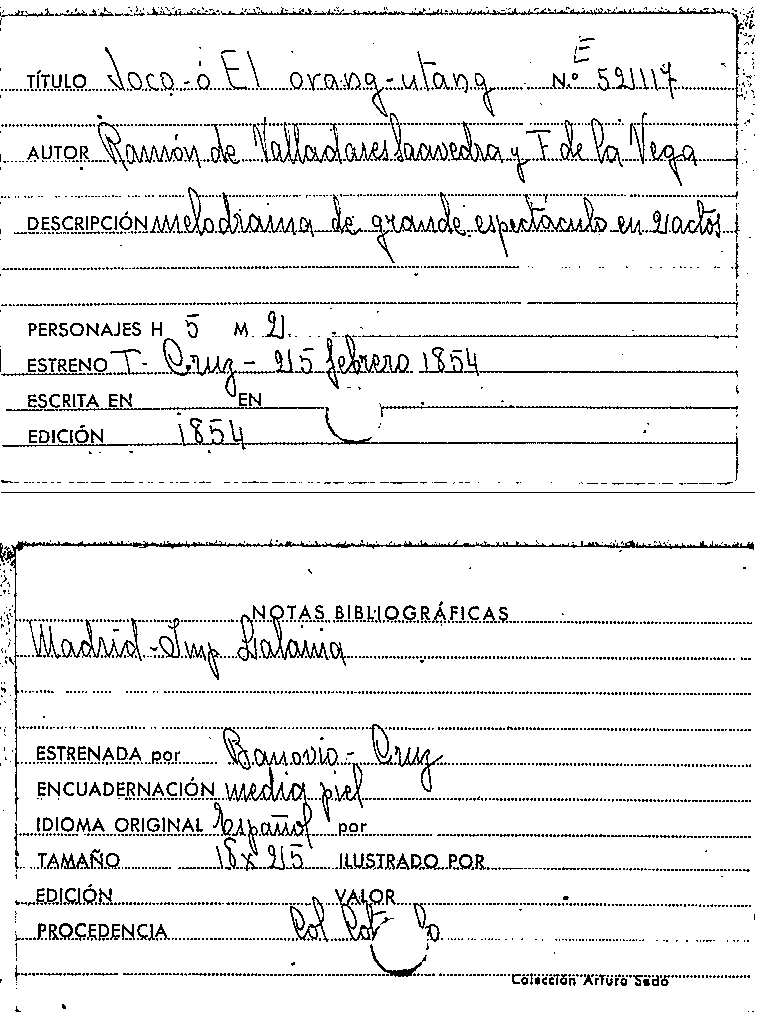 E
TÍTULO Joco-ó El orang-utang N.º 52117
AUTOR Ramón de Valladares Saavedra y F de la Vega
DESCRIPCIÓN melodrama de grande espectáculo en 2 actos
PERSONAJES H 5 M 2
ESTRENO T- Cruz - 25 febrero 1854
ESCRITA EN EN
EDICIÓN 1854
NOTAS BIBLIOGRÁFICAS
Madrid - Imp Lalama
ESTRENADA por Banovio - Cruz
ENCUADERNACIÓN media piel
IDIOMA ORIGINAL Español por
TAMAÑO 18 x 25 ILUSTRADO POR
EDICIÓN VALOR
PROCEDENCIA Col
Colección Arturo Sedó